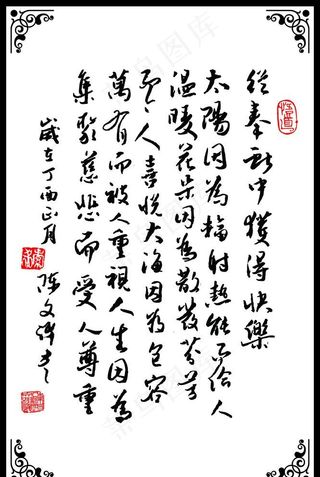 從奉獻中獲得快樂
太陽因為輻射熱能而給人
溫暖花朵因為散發芬芳
而人喜悅大海因為包容
萬有而被人重視人生因為
集聚慈悲而受人尊重
歲在丁酉正月
陈文